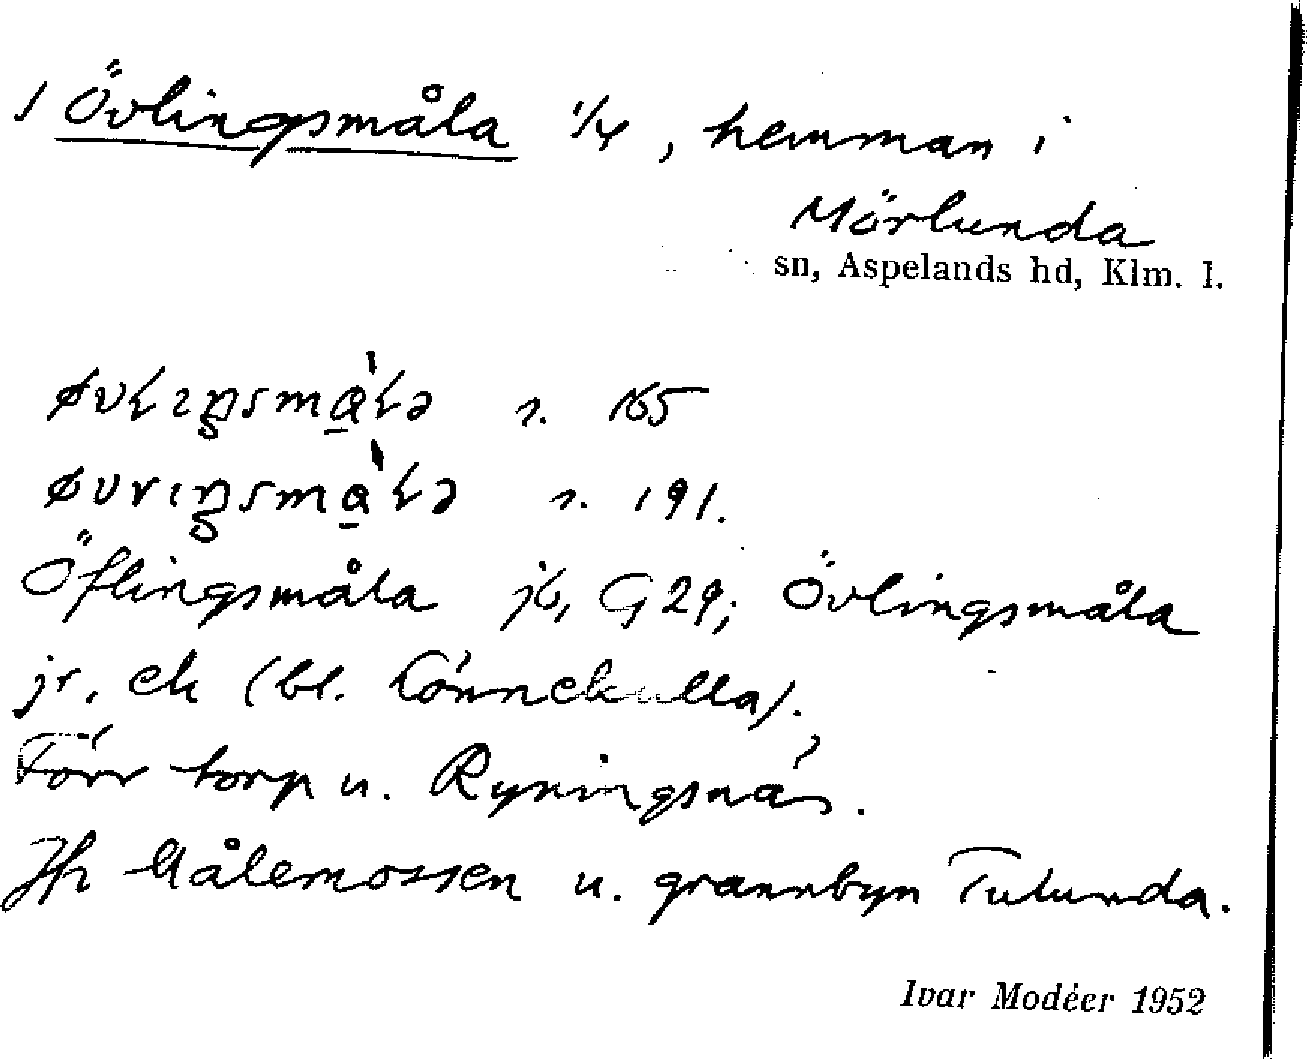 1 Övlingsmåla 1/4, hemman i
Mörlunda
sn, Aspelands hd, Klm. l.
s. 165
s. 191.
Öflingsmåla jb, G 29; Övlingsmåla
jr, ek (bl. Lönnekulla).
Förr torp u. Ryningsnäs.
Jfr Målemossen u. grannbyn Tulunda.
Ivar Modéer 1952